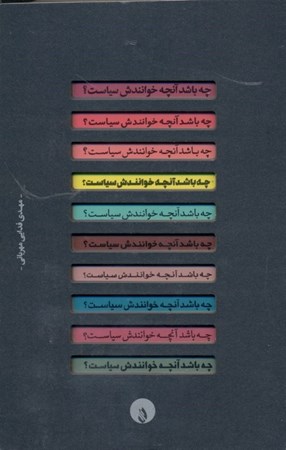 چه باشد آنچه خوانندش سیاست؟
چه باشد آنچه خوانندش سیاست؟
چه باشد آنچه خوانندش سیاست؟
چه باشد آنچه خوانندش سیاست؟
چه باشد آنچه خوانندش سیاست؟
چه باشد آنچه خوانندش سیاست؟
چه باشد آنچه خوانندش سیاست؟
چه باشد آنچه خوانندش سیاست؟
چه باشد آنچه خوانندش سیاست؟
چه باشد آنچه خوانندش سیاست؟
- مهدی فدایی مهربانی -